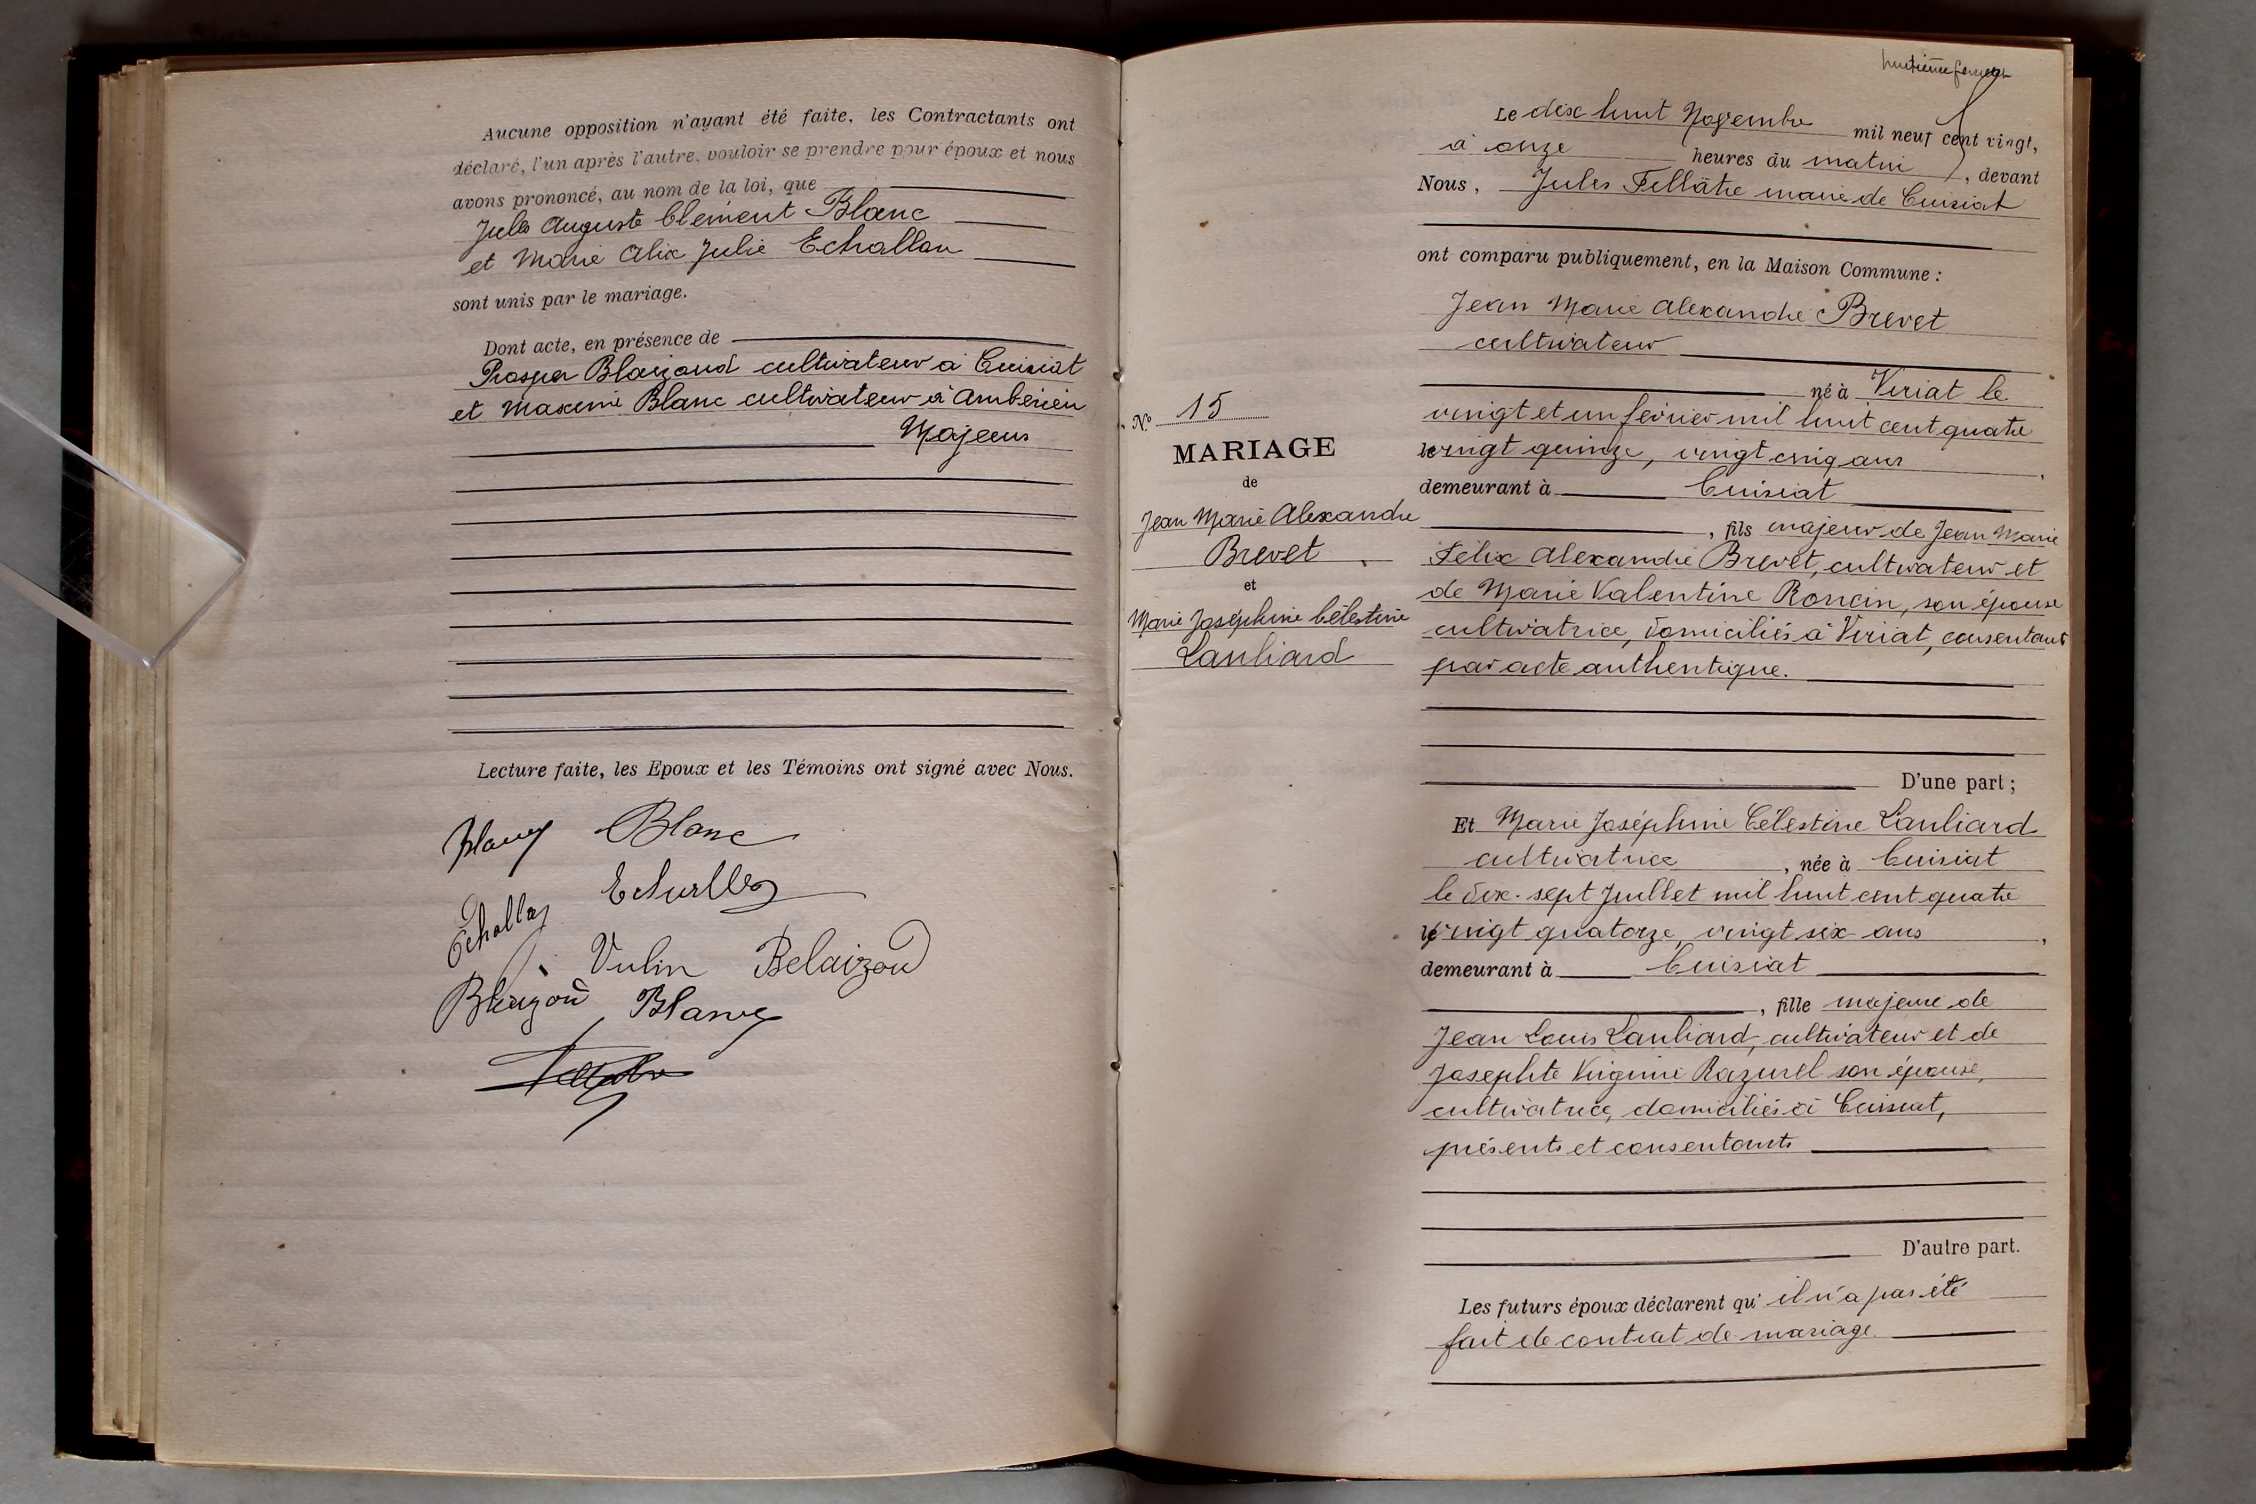 Aucune opposition n'ayant été faite, les Contractants ont
déclaré, l'un après l'autre, vouloir se prendre pour époux et nous
avons prononcé, au nom de la loi, que
Jules Auguste Clément Blanc
et Marie Alix Julie Echallon
sont unis par le mariage.
Dont acte, en présence de
Prosper Blaizond cultivateur à Cuisiat
et Maxime Blanc cultivateur à Ambérieu
Majeurs
Lecture faite, les Epoux et les Témoins ont signé avec Nous.
Blanc
Echallon
Vulin Belaizoud
Blanc
huitième
Le dix huit Novembre mil neuf cent vingt,
à onze heures du matin, devant
Nous, Jules Fillâtre maire de Cuisiat
ont comparu publiquement, en la Maison Commune :
Jean Marie Alexandre Brevet
cultivateur
né à Viriat le
vingt et un février mil huit cent quatre
vingt quinze, vingt cinq ans
demeurant à Cuisiat
, fils majeur de Jean Marie
Félix Alexandre Brevet, cultivateur et
de Marie Valentine Roncin, son épouse
cultivatrice, domiciliés à Viriat, consentant
par acte authentique.
D'une part ;
N° 15
MARIAGE
de
Jean Marie Alexandre
Brevet
et
Marie Joséphine Célestine
Lauliard
Et Marie Joséphine Célestine Lauliard
cultivatrice, née à Cuisiat
le dix-sept Juillet mil huit cent quatre
vingt quatorze, vingt six ans
demeurant à Cuisiat
, fille majeure de
Jean Louis Lauliard, cultivateur et de
Josephte Virginie Razurel son épouse,
cultivatrice, domiciliés à Cuisiat,
présents et consentants
D'autre part.
Les futurs époux déclarent qu'il n'a pas été
fait de contrat de mariage.